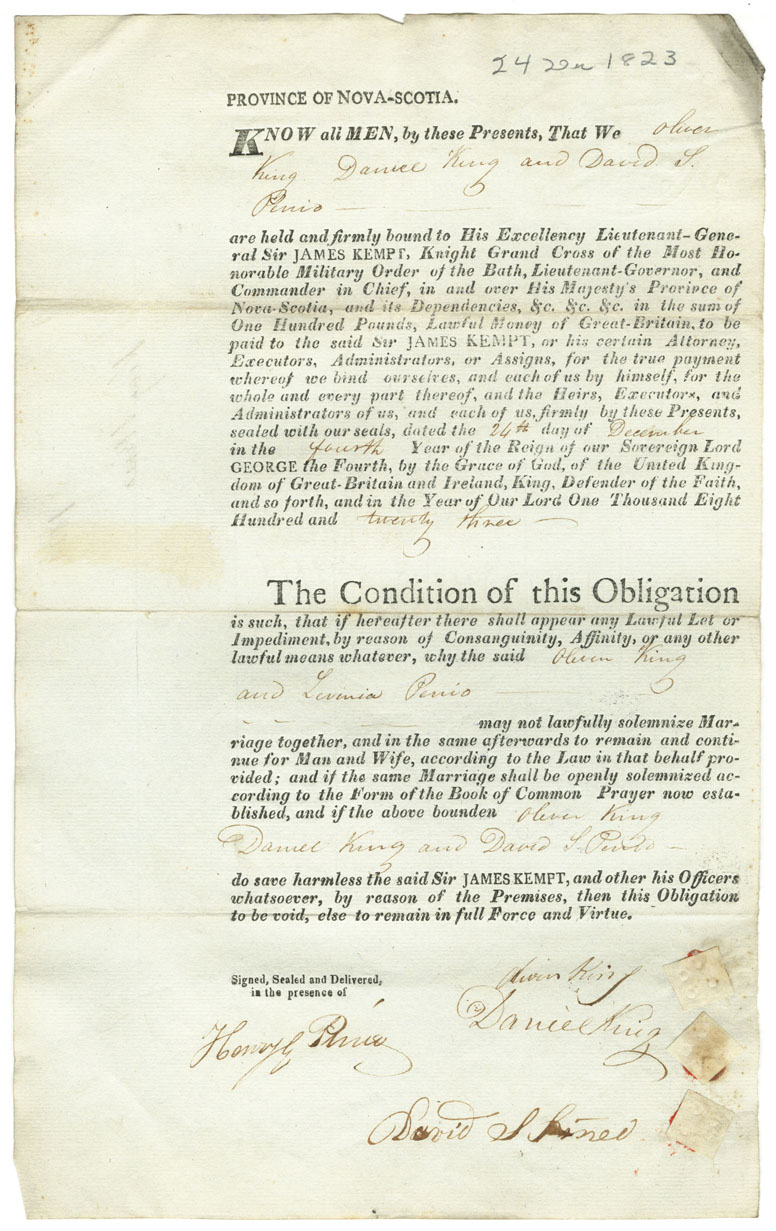 24 Dec 1823
PROVINCE OF NOVA-SCOTIA.
KNOW all MEN, by these Presents, That We Oliver
King Daniel King and David S.
Pinio
are held and firmly bound to His Excellency Lieutenant-Gene-
ral Sir JAMES KEMPT, Knight Grand Cross of the Most Ho-
norable Military Order of the Bath, Lieutenant-Governor, and
Commander in Chief, in and over His Majesty's Province of
Nova-Scotia, and its Dependencies, &c. &c. &c. in the sum of
One Hundred Pounds, Lawful Money of Great-Britain, to be
paid to the said Sir JAMES KEMPT, or his certain Attorney,
Executors, Administrators, or Assigns, for the true payment
whereof we bind ourselves, and each of us by himself, for the
whole and every part thereof, and the Heirs, Executors, and
Administrators of us, and each of us, firmly by these Presents,
sealed with our seals, dated the 24th day of December
in the fourth Year of the Reign of our Sovereign Lord
GEORGE the Fourth, by the Grace of God, of the United King-
dom of Great-Britain and Ireland, King, Defender of the Faith,
and so forth, and in the Year of Our Lord One Thousand Eight
Hundred and twenty three
The Condition of this Obligation
is such, that if hereafter there shall appear any Lawful Let or
Impediment, by reason of Consanguinity, Affinity, or any other
lawful means whatever, why the said Oliver King
and Levenia Pinio
may not lawfully solemnize Mar-
riage together, and in the same afterwards to remain and conti-
nue for Man and Wife, according to the Law in that behalf pro-
vided; and if the same Marriage shall be openly solemnized ac-
cording to the Form of the Book of Common Prayer now esta-
blished, and if the above bounden Oliver King
Daniel King and David S. Pinio
do save harmless the said Sir JAMES KEMPT, and other his Officers
whatsoever, by reason of the Premises, then this Obligation
to be void, else to remain in full Force and Virtue.
Signed, Sealed and Delivered,
in the presence of
Oliver King
Daniel King
Henry G Pinio
David S